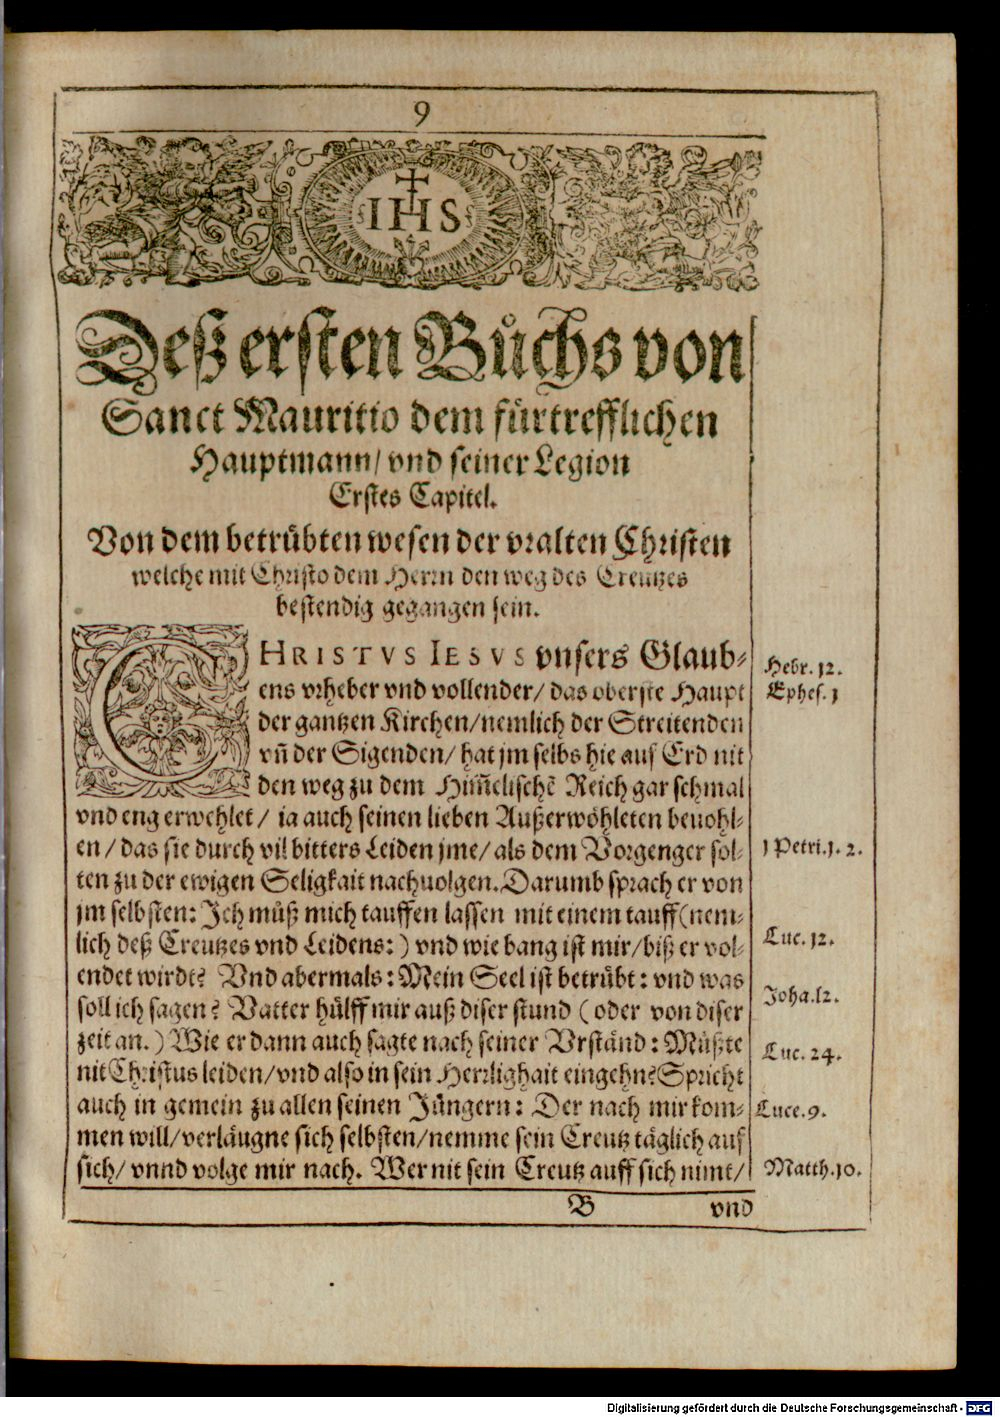 9
IHS
Deß ersten Bůchs von
Sanct Mauritio dem fürtrefflichen
Hauptmann/ vnd seiner Legion
Erstes Capitel.
Von dem betrübten wesen der vralten Christen
welche mit Christo dem Herrn den weg des Creutzes
bestendig gegangen sein.
CHRISTVS IESVS vnsers Glaub-
ens vrheber vnd vollender/ das oberste Haupt
der gantzen Kirchen/ nemlich der Streitenden
vñ der Sigenden/ hat jm selbs hie auf Erd nit
den weg zu dem Him̃elischẽ Reich gar schmal
vnd eng erwehlet/ ja auch seinen lieben Außerwöhleten beuohl-
en/ das sie durch vil bitters Leiden jme/ als dem Vorgenger sol-
ten zu der ewigen Seligkait nachuolgen. Darumb sprach er von
jm selbsten: Ich můß mich tauffen lassen mit einem tauff (nem-
lich deß Creutzes vnd Leidens:) vnd wie bang ist mir/ biß er vol-
endet wirdt? Vnd abermals: Mein Seel ist betrübt: vnd was
soll ich sagen? Vatter hülff mir auß diser stund (oder von diser
zeit an.) Wie er dann auch sagte nach seiner Vrständ: Müßte
nit Christus leiden/ vnd also in sein Herrlighait eingehn? Spricht
auch in gemein zu allen seinen Jüngern: Der nach mir kom-
men will/ verläugne sich selbsten/ nemme sein Creutz täglich auf
sich/ vnnd volge mir nach. Wer nit sein Creutz auff sich nimt/
B vnd
Hebr. 12.
Ephes. 1
1 Petri. 1. 2.
Luc. 12.
Joha. 12.
Luc. 24.
Luce. 9.
Matth. 10.
Digitalisierung gefördert durch die Deutsche Forschungsgemeinschaft - DFG